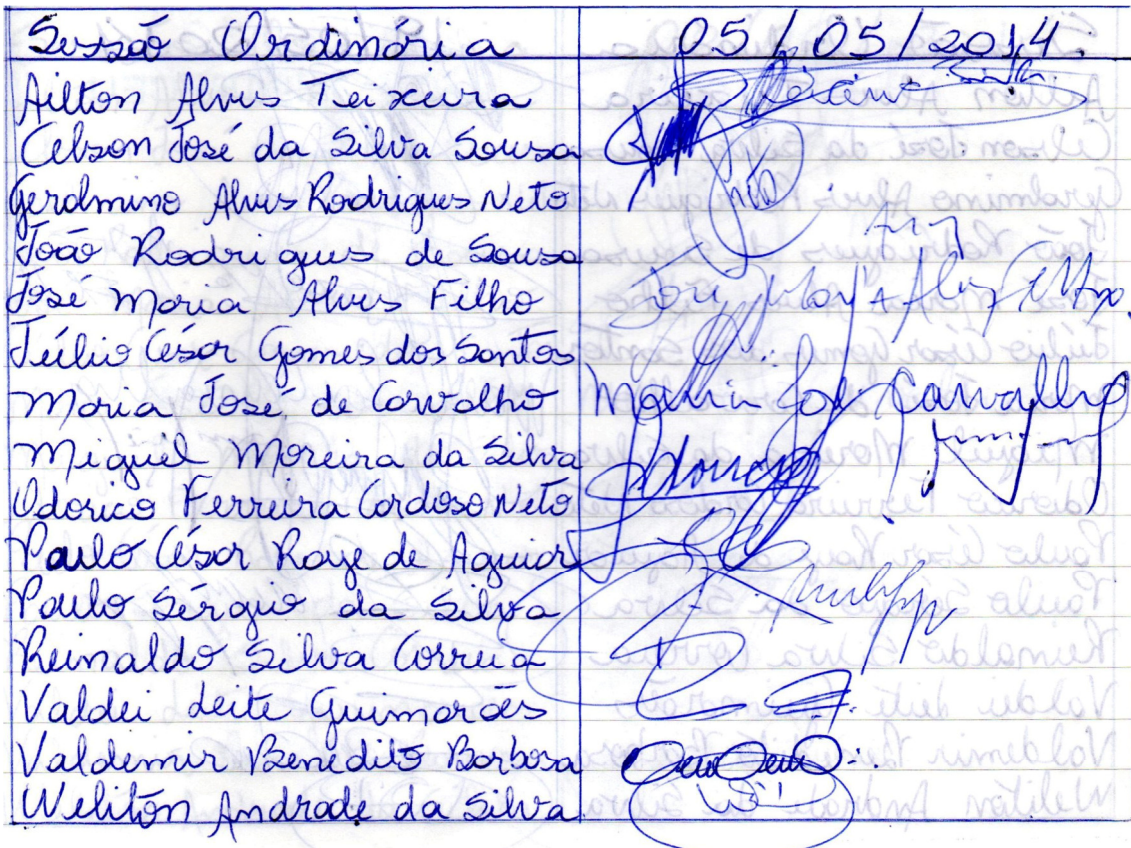 Sessão Ordinária 05/05/2014.
Ailton Alves Teixeira
Celson José da Silva Sousa
Gerolmino Alves Rodrigues Neto Neto
João Rodrigues de Sousa
José Maria Alves Filho José Maria Alves Filho
Júlio César Gomes dos Santos
Maria José de Carvalho Maria José Carvalho
Miguel Moreira da Silva
Odorico Ferreira Cardoso Neto
Paulo César Raye de Aguiar
Paulo Sérgio da Silva
Reinaldo Silva Correia
Valdei Leite Guimarães
Valdemir Benedito Barbosa
Weliton Andrade da Silva